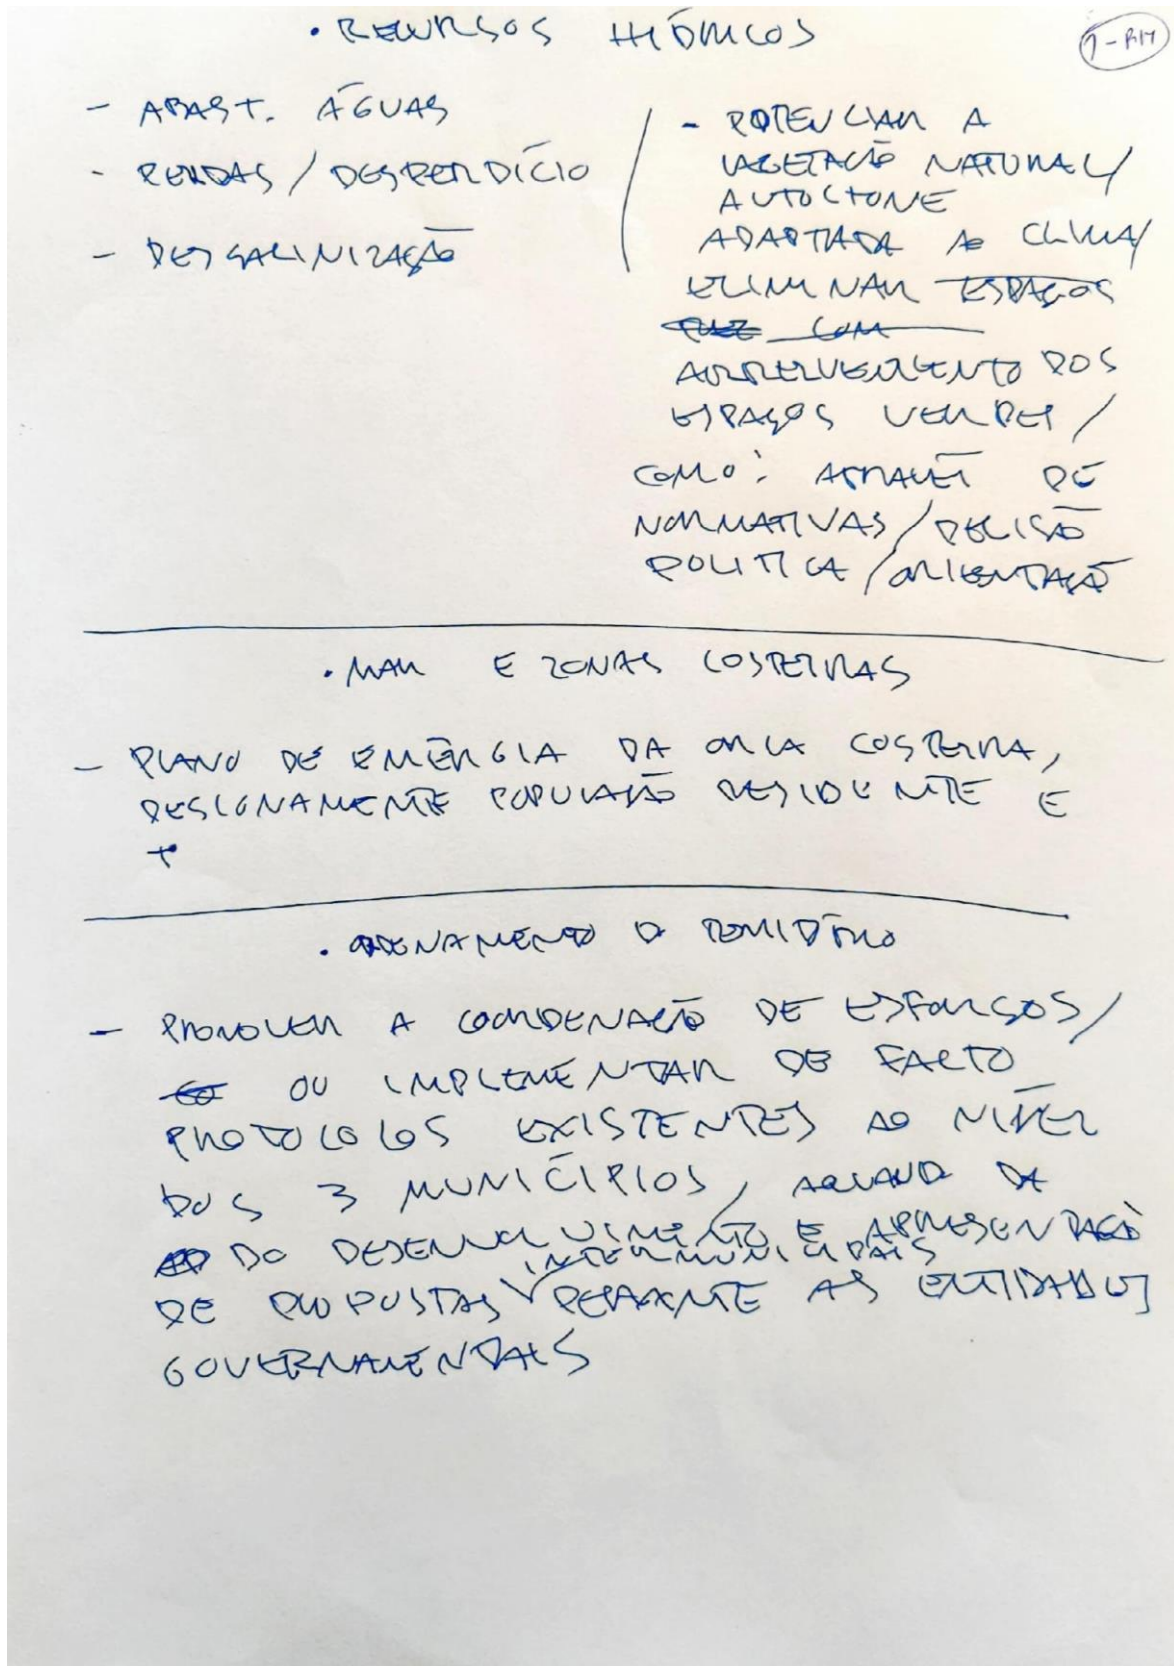 • RECURSOS HÍDRICOS
1-RH
- ABAST. ÁGUAS
- PERDAS / DESPERDÍCIO
- DESSALINIZAÇÃO
- POTENCIAR A
VEGETAÇÃO NATURAL/
AUTOCTONE
ADAPTADA AO CLIMA/
ELIMINAR ESPAÇOS
QUE COM
ARRELVAMENTO DOS
ESPAÇOS VERDES /
COMO: ATRAVÉS DE
NORMATIVAS / DECISÃO
POLITICA / ORIENTAÇÃO
• MAR E ZONAS COSTEIRAS
- PLANO DE EMÊRGIA DA ORLA COSTEIRA,
DESIGNAMENTE POPULAÇÃO RESIDENTE E
+
• ORDENAMENTO D TERRITÓRIO
- PROMOVER A COORDENAÇÃO DE ESFORÇOS /
CO OU IMPLEMENTAR DE FACTO
PROTOCOLOS EXISTENTES AO NÍVEL
DOS 3 MUNICÍPIOS, AQUANDO DA
DO DESENVOLVIMENTO E APRESENTAÇÃO
INTERMUNICIPAIS
DE PROPOSTAS PERANTE AS ENTIDADES
GOVERNAMENTAIS